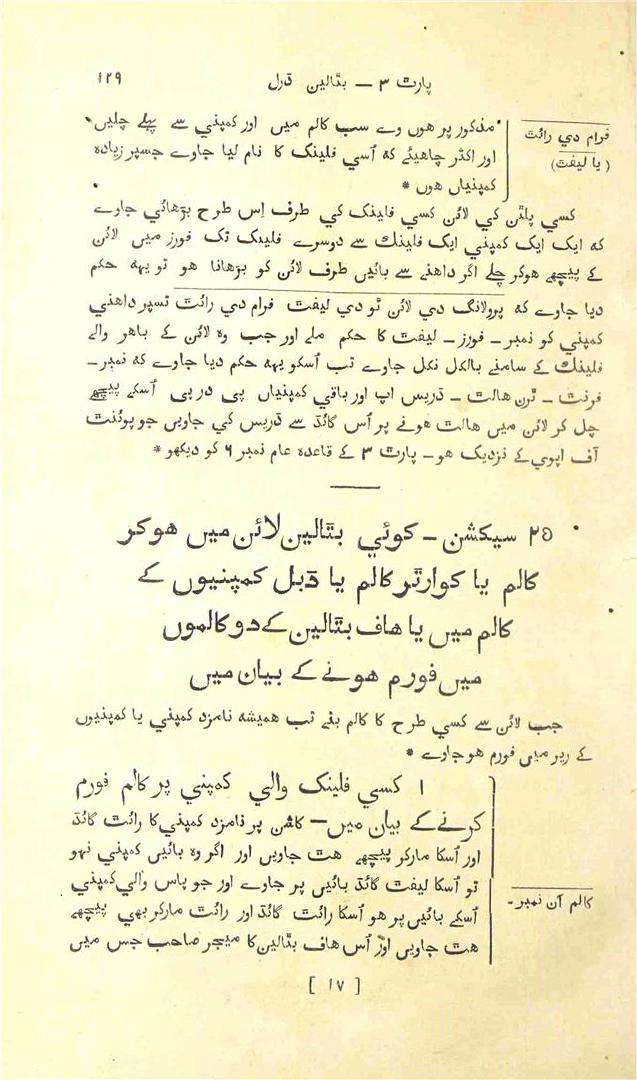 پارٹ ۳ — بٹالین ڈرل ۱۲۹
فرام دي رائٹ
(یا لیفٹ)
مذکور پر ہوں وے سب کالم میں اور کمپني سے پہلے چلیں
اور اکثر چاہیئے کہ اُسي فلینک کا نام لیا جاوے جسپر زیادہ
کمپنیاں ہوں *
کسي پلٹن کي لائن کسي فلینک کي طرف اِس طرح بڑھائي جاوے
کہ ایک ایک کمپني ایک فلینك سے دوسرے فلینك تک فورز میں لائن
کے پیچھے ہوکر چلے اگر داہنے سے بائیں طرف لائن کو بڑھانا ہو تو یہہ حکم
دیا جاوے کہ پرولانگ دي لائن ٹو دي لیفٹ فرام دي رائٹ تسپر داہني
کمپني کو نمبر – فورز – لیفٹ کا حکم ملے اور جب وہ لائن کے باہر والے
فلینك کے سامنے بالکل نکل جاوے تب اُسکو یہہ حکم دیا جاوے کہ نمبر –
فرنٹ – ٹرن ہالٹ – ڈریس اپ اور باقي کمپنیاں پی در پی اُسکے پیچھے
چل کر لائن میں ہالٹ ہونے پر اُس گائڈ سے ڈریس کي جاویں جو پوئنٹ
آف اپوي کے نزدیک ہو – پارٹ ۳ کے قاعدہ عام نمبر ۶ کو دیکھو *
۲۵ سیکشن – کوئي بٹالین لائن میں ہوکر
کالم یا کوارٹر کالم یا ڈبل کمپنیوں کے
کالم میں یا ہاف بٹالین کے دو کالموں
میں فورم ہونے کے بیان میں
جب لائن سے کسي طرح کا کالم بنے تب ہمیشہ نامزد کمپني یا کمپنیوں
کے ریر میں فورم ہوجاوے *
۱ کسي فلینک والي کمپني پر کالم فورم
کرنے کے بیان میں – کاشن پر نامزد کمپني کا رائٹ گائڈ
اور اُسکا مارکر پیچھے ہٹ جاویں اور اگر وہ بائیں کمپني نہو
کالم آن نمبر –
تو اُسکا لیفٹ گائڈ بائیں پر جاوے اور جو پاس والي کمپني
اُسکے بائیں پر ہو اُسکا رائٹ گائڈ اور رائٹ مارکر بھي پیچھے
ہٹ جاویں اور اُس ہاف بٹالین کا میجر صاحب جس میں
[ ۱۷ ]